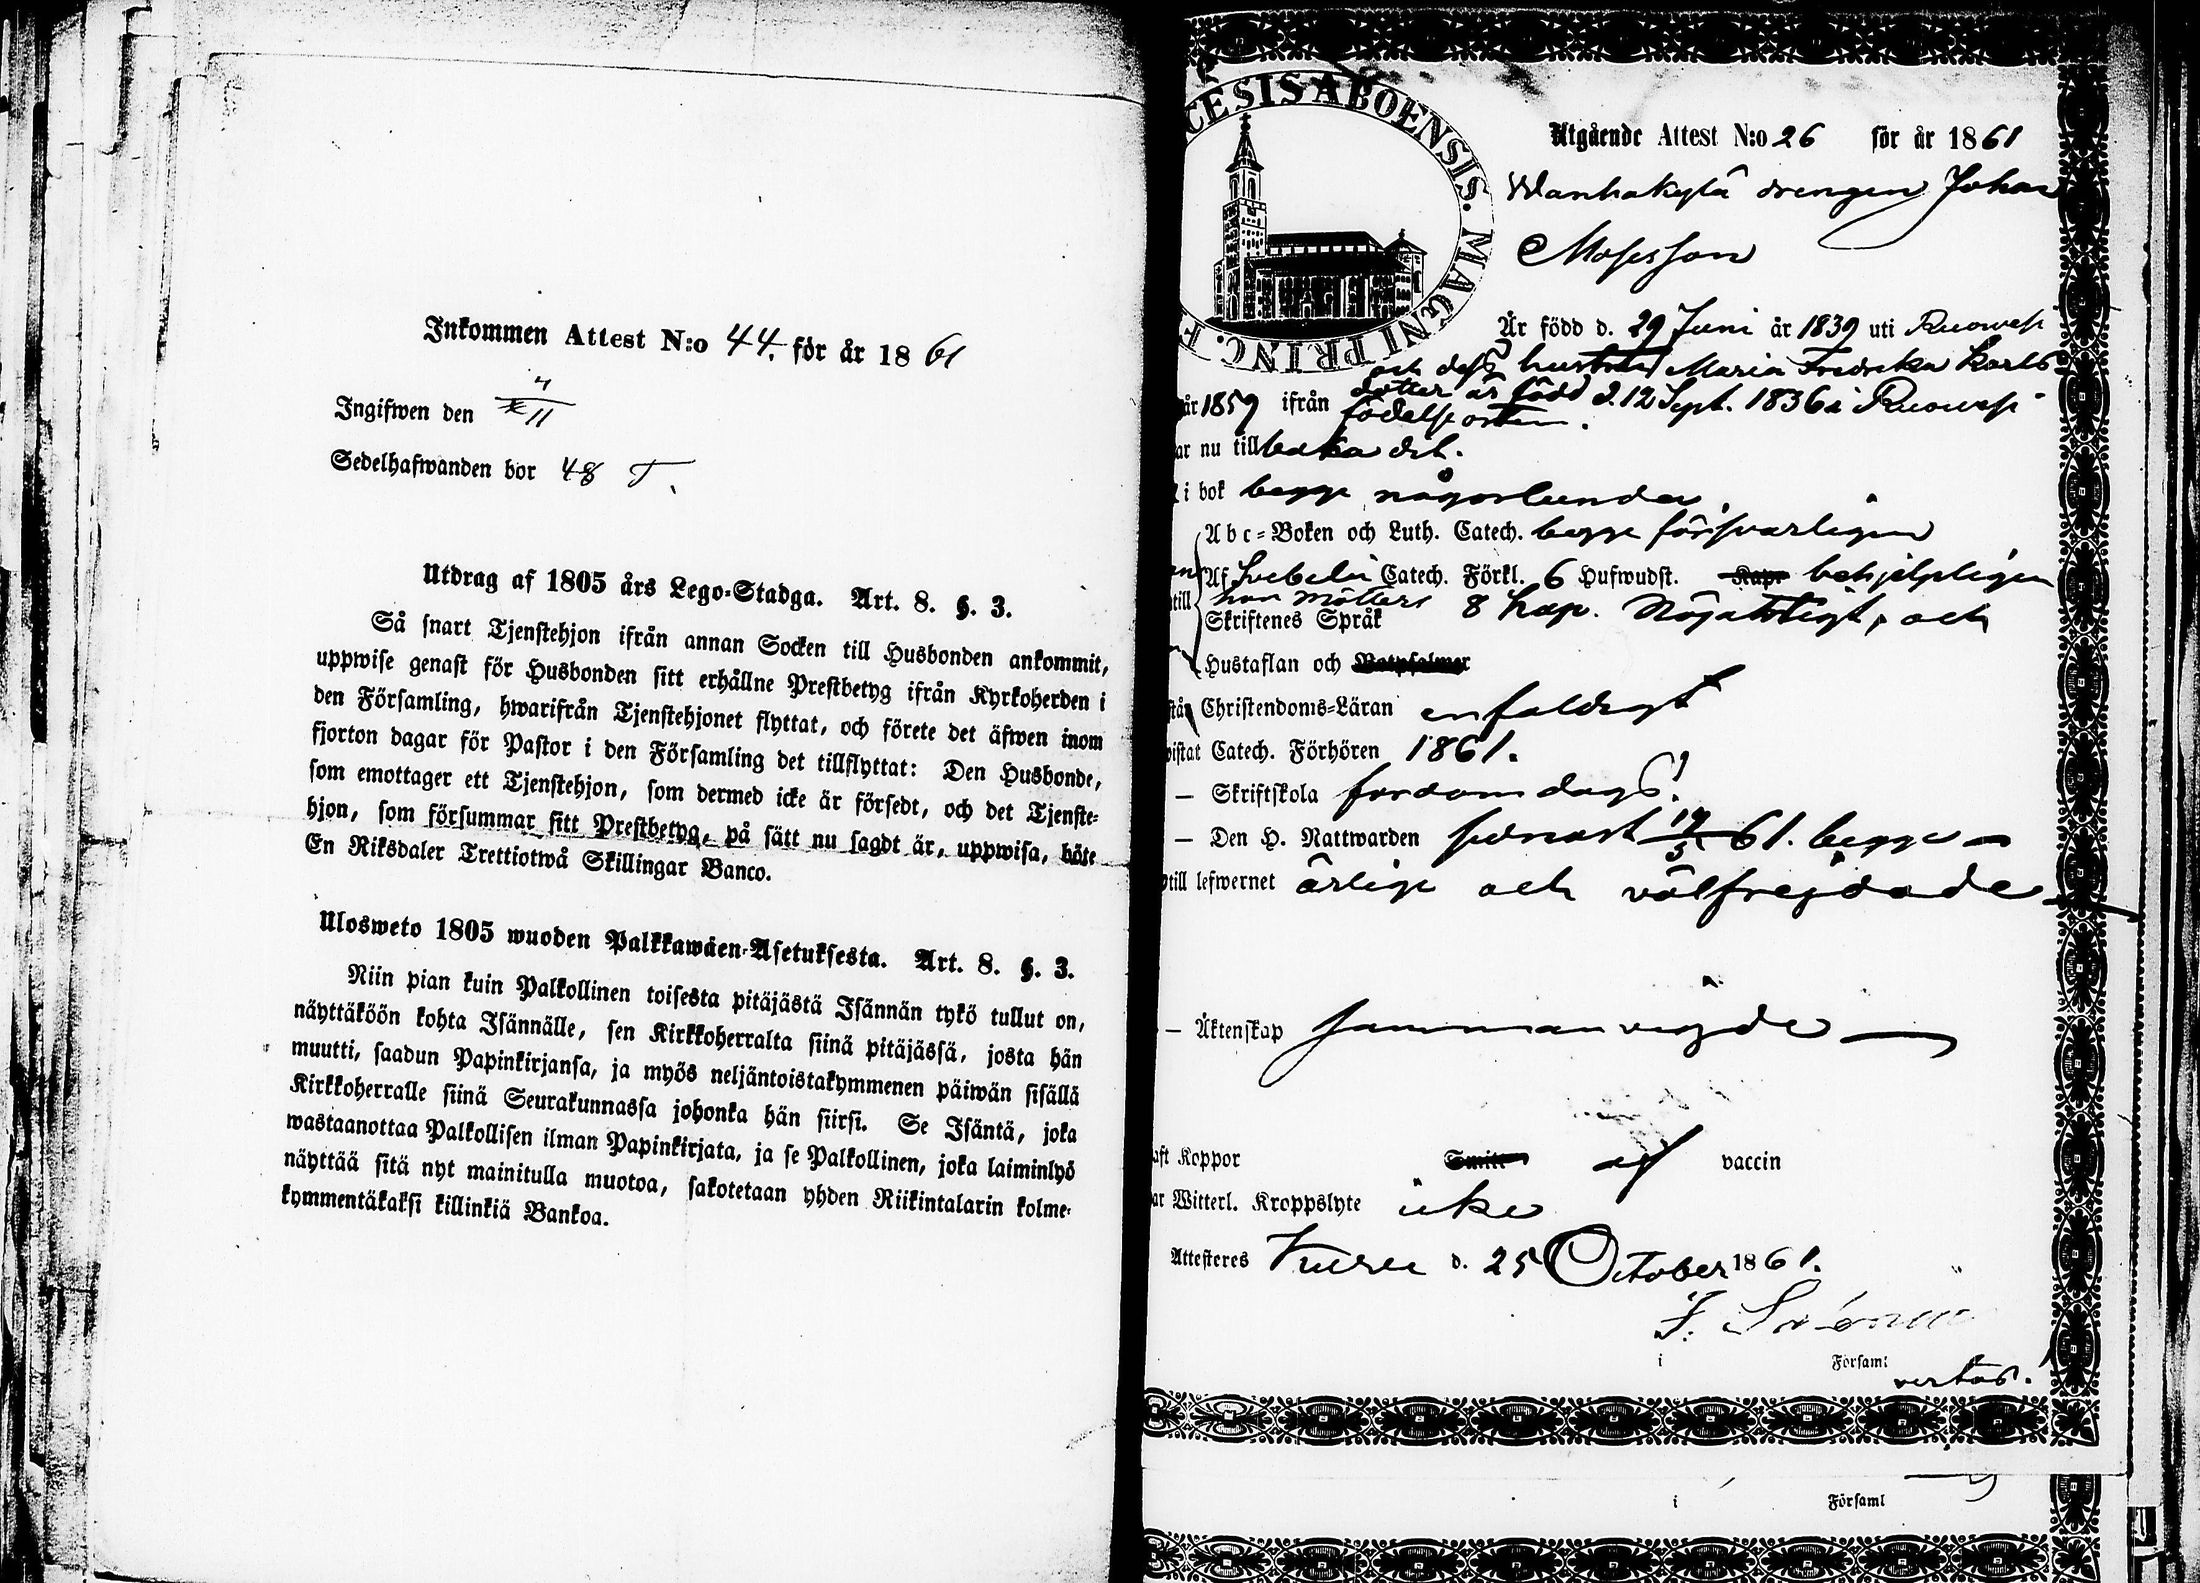 Inkommen Attest N:o 44. för år 1861
Ingifwen den 4/11
Sedelhafwanden bor 48 T.
Utdrag af 1805 års Lego-Stadga. Art. 8. §. 3.
Så snart Tjenstehjon ifrån annan Socken till Husbonden ankommit,
uppwise genast för Husbonden sitt erhållne Prestbetyg ifrån Kyrkoherden i
den Församling, hwarifrån Tjenstehjonet flyttat, och förete det äfwen inom
fjorton dagar för Pastor i den Församling det tillflyttat: Den Husbonde,
som emottager ett Tjenstehjon, som dermed icke är försedt, och det Tjenste-
hjon, som försummar sitt Prestbetyg, på sätt nu sagdt är, uppwisa, böte
En Riksdaler Trettiotwå Skillingar Banco.
Ulosweto 1805 wuoden Palkkawäen-Asetuksesta. Art. 8. §. 3.
Niin pian kuin Palkollinen toisesta pitäjästä Isännän tykö tullut on,
näyttäköön kohta Isännälle, sen Kirkkoherralta siinä pitäjässä, josta hän
muutti, saadun Papinkirjansa, ja myös neljäntoistakymmenen päiwän sisällä
Kirkkoherralle siinä Seurakunnassa johonka hän siirsi. Se Isäntä, joka
wastaanottaa Palkollisen ilman Papinkirjata, ja se Palkollinen, joka laiminlyö
näyttää sitä nyt mainitulla muotoa, sakotetaan yhden Riikintalarin kolme-
kymmentäkaksi killinkiä Bankoa.
CESIS ABOENSIS. MAGNI PRINC. F
Utgående Attest N:o 26 för år 1861
Wanhakylä drengen Johan
Mosesson
Är född d. 29 Juni år 1839 uti Ruowesi
och dess hustru Maria Fredrika Karls
dotter är född d. 12 Sept. 1836 i Ruowesi
år 1859 ifrån födelseorten.
ar nu tillbaka dit.
i bok begge någorlunda
Abc-Boken och Luth. Catech. begge förswarligen
Af Svebelii Catech. Förkl. 6 Hufwudst. Kap. behjelpligen
Skriftenes Språk 8 kap. Nöjaktigt, och
Hustaflan och Botpsalmer
Christendoms-Läran enfaldigt
wistat Catech. Förhören 1861.
— Skriftskola fordomdags
— Den H. Nattwarden senast 19/5 61. begge
till lefwernet ärlige och välfrejdade
— Äktenskap sammanvigde
aft Koppor af vaccin
ar Witterl. Kroppslyte icke
Attesteres Kuru d. 25 October 1861.
i Församl
i Församl